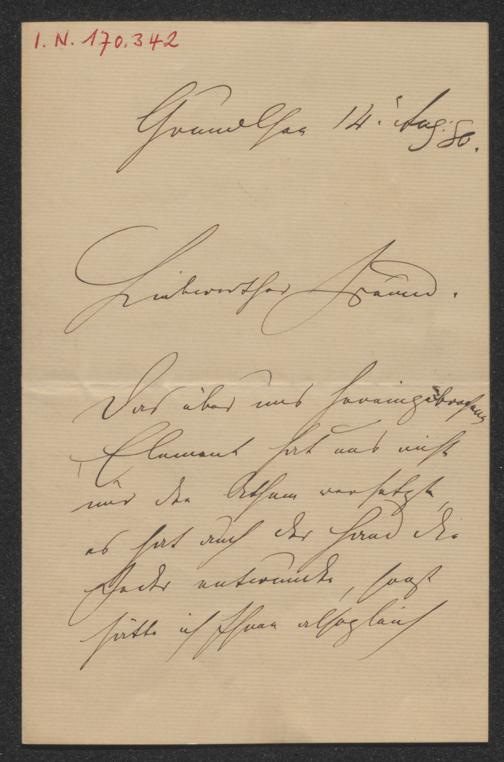 I. N. 170.342
Grundlsee 14. Aug. 80.
Liebwerther Freund.
Das über uns hereingebrochene
Element hat uns nicht
nur den Athem versetzt,
es hat auch der Hand die
Feder entwunden, sonst
hätte ich Ihnen alsogleich